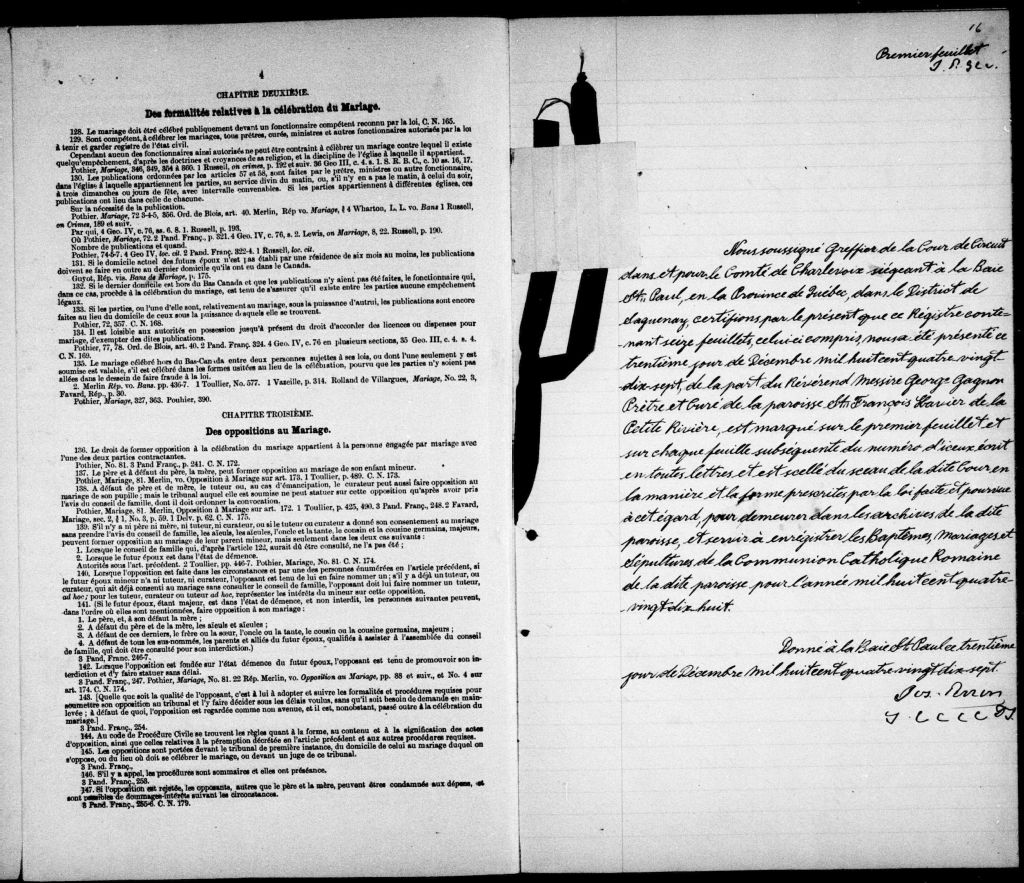 4
CHAPITRE DEUXIÈME.
Des formalités relatives à la célébration du Mariage.
128. Le mariage doit être célébré publiquement devant un fonctionnaire compétent reconnu par la loi, C. N. 165.
129. Sont compétent, à célébrer les mariages, tous prêtres, curés, ministres et autres fonctionnaires autorisés par la loi
à tenir et garder registre de l'état civil.
Cependant aucun des fonctionnaires ainsi autorisés ne peut être contraint à célébrer un mariage contre lequel il existe
quelqu'empêchement, d'après les doctrines et croyances de sa religion, et la discipline de l'église à laquelle il appartient.
Pothier, Mariage, 346, 349, 354 à 360. 1 Russell, on crimes, p. 192 et suiv. 36 Geo III, c. 4. s. 1. S. R. B. C., c. 10 ss. 16, 17.
130. Les publications ordonnées par les articles 57 et 58, sont faites par le prêtre, ministres ou autre fonctionnaire,
dans l'église à laquelle appartiennent les parties, au service divin du matin, ou, s'il n'y en a pas le matin, à celui du soir,
à trois dimanches ou jours de fête, avec intervalle convenables. Si les parties appartiennent à différentes églises, ces
publications ont lieu dans celle de chacune.
Sur la nécessité de la publication.
Pothier, Mariage, 72 3-4-5, 356. Ord. de Blois, art. 40. Merlin, Rép vo. Mariage, § 4 Wharton, L. L. vo. Bans 1 Russell,
on Crimes, 189 et suiv.
Par qui, 4 Geo. IV, c. 76, ss. 6. 8. 1. Russell, p. 193.
Où Pothier, Mariage, 72. 2 Pand. Franç., p. 321. 4 Geo. IV, c. 76, s. 2. Lewis, on Marriage, 8, 22. Russell, p. 190.
Nombre de publications et quand.
Pothier, 74-5-7. 4 Geo IV, loc. cit. 2 Pand. Franç. 322-4. 1 Russell, loc. cit.
131. Si le domicile actuel des futurs époux n'est pas établi par une résidence de six mois au moins, les publications
doivent se faire en outre au dernier domicile qu'ils ont eu dans le Canada.
Guyot, Rép. vis. Bans de Mariage, p. 175.
132. Si le dernier domicile est hors du Bas Canada et que les publications n'y aient pas été faites, le fonctionnaire qui,
dans ce cas, procède à la célébration du mariage, est tenu de s'assurer qu'il existe entre les parties aucune empêchement
légaux.
133. Si les parties, ou l'une d'elle sont, relativement au mariage, sous la puissance d'autrui, les publications sont encore
faites au lieu du domicile de ceux sous la puissance desquels elle se trouvent.
Pothier, 72, 357. C. N. 168.
134. Il est loisible aux autorités en possession jusqu'à présent du droit d'accorder des licences ou dispenses pour
mariage, d'exempter des dites publications.
Pothier, 77, 78. Ord. de Blois, art. 40. 2 Pand. Franç. 324. 4 Geo IV, c. 76 en plusieurs sections, 35 Geo. III, c. 4. s. 4.
C. N. 169.
135. Le mariage célébré hors du Bas-Canada entre deux personnes sujettes à ses lois, ou dont l'une seulement y est
soumise est valable, s'il est célébré dans les formes usitées au lieu de la célébration, pourvu que les parties n'y soient pas
allées dans le dessein de faire fraude à la loi.
2. Merlin Rép. vo. Bans. pp. 436-7. 1 Toullier, No. 577. 1 Vazeille, p. 314. Rolland de Villargues, Mariage, No. 22, 3,
Favard, Rép., p. 30.
Pothier, Mariage, 327, 363. Pouhier, 390.
CHAPITRE TROISIÈME.
Des oppositions au Mariage.
136. Le droit de former opposition à la célébration du mariage appartient à la personne engagée par mariage avec
l'une des deux parties contractantes.
Pothier, No. 81. 3 Pand Franç., p. 241. C. N. 172.
137. Le père et à défaut du père, la mère, peut former opposition au mariage de son enfant mineur.
Pothier, Mariage, 81. Merlin, vo. Opposition à Mariage sur art. 173. 1 Toullier, p. 489. C. N. 173.
138. A défaut de père et de mère, le tuteur ou, au cas d'émancipation, le curateur peut aussi faire opposition au
mariage de son pupille; mais le tribunal auquel elle est soumise ne peut statuer sur cette opposition qu'après avoir pris
l'avis du conseil de famille, dont il doit ordonner la convocation.
Pothier, Mariage, 81. Merlin, Opposition à Mariage sur art. 172. 1 Toullier, p. 425, 490. 3 Pand. Franç., 248. 2 Favard,
Mariage, sec. 2, § 1, No. 3, p. 59. 1 Delv. p. 62. C. N. 175.
139. S'il n'y a ni père ni mère, ni tuteur, ni curateur, ou si le tuteur ou curateur a donné son consentement au mariage
sans prendre l'avis du conseil de famille, les aïeuls, les aïeules, l'oncle et la tante, le cousin et la cousine germains, majeurs,
peuvent former opposition au mariage de leur parent mineur, mais seulement dans les deux cas suivants :
1. Lorsque le conseil de famille qui, d'après l'article 122, aurait dû être consulté, ne l'a pas été ;
2. Lorsque le futur époux est dans l'état de démence.
Autorités sous l'art. précédent. 2 Toullier, pp. 446-7. Pothier, Mariage, No. 81 C. N. 174.
140. Lorsque l'opposition est faite dans les circonstances et par une des personnes énumérées en l'article précédent, si
le futur époux mineur n'a ni tuteur, ni curateur, l'opposant est tenu de lui en faire nommer un; s'il y a déjà un tuteur, ou
curateur, qui ait déjà consenti au mariage sans consulter le conseil de famille, l'opposant doit lui faire nommer un tuteur,
ad hoc; pour les tuteur, curateur ou tuteur ad hoc, représenter les intérêts du mineur sur cette opposition.
141. (Si le futur époux, étant majeur, est dans l'état de démence, et non interdit, les personnes suivantes peuvent,
dans l'ordre où elles sont mentionnées, faire opposition à son mariage :
1. Le père, et, à son défaut la mère ;
2. A défaut du père et de la mère, les aïeuls et aïeules ;
3. A défaut de ces derniers, le frère ou la sœur, l'oncle ou la tante, le cousin ou la cousine germains, majeurs ;
4. A défaut de tous les sus-nommés, les parents et alliés du futur époux, qualifiés à assister à l'assemblée du conseil
de famille, qui doit être consulté pour son interdiction.)
3 Pand. Franç. 246-7.
142. Lorsque l'opposition est fondée sur l'état démence du futur époux, l'opposant est tenu de promouvoir son in-
terdiction et d'y faire statuer sans délai.
3 Pand. Franç., 247. Pothier, Mariage, No. 81. 22 Rép. Merlin, vo. Opposition au Mariage, pp. 88 et suiv., et No. 4 sur
art. 174. C. N. 174.
143. [Quelle que soit la qualité de l'opposant, c'est à lui à adopter et suivre les formalités et procédures requises pour
soumettre son opposition au tribunal et l'y faire décider sous les délais voulus, sans qu'il soit besoin de demande en main-
levée ; à défaut de quoi, l'opposition est regardée comme non avenue, et il est, nonobstant, passé outre à la célébration du
mariage.]
3 Pand. Franç., 254.
144. Au code de Procédure Civile se trouvent les règles quant à la forme, au contenu et à la signification des actes
d'opposition, ainsi que celles relatives à la péremption décrétée en l'article précédent et aux autres procédures requises.
145. Les oppositions sont portées devant le tribunal de première instance, du domicile de celui au mariage duquel on
s'oppose, ou du lieu où doit se célébrer le mariage, ou devant un juge de ce tribunal.
3 Pand. Franç.,
146. S'il y a appel, les procédures sont sommaires et elles ont préséance.
3 Pand. Franç., 258.
147. Si l'opposition est rejetée, les opposants, autres que le père et la mère, peuvent être condamnés aux dépens, et
sont passibles de dommages-intérêts suivant les circonstances.
3 Pand. Franç., 255-6. C. N. 179.
16
Premier feuillet
Nous soussigné Greffier de la Cour de Circuit
dans et pour le Comté de Charlevoix siégeant à la Baie
St. Paul, en la Province de Québec, dans le District de
Saguenay, certifions par le présent que ce Registre conte-
nant seize feuillets, celui ci compris, nous a été présenté ce
trentième jour de Décembre mil huit cent quatre vingt
dix-sept, de la part du Révérend Messire George Gagnon
Prêtre et Curé de la paroisse St. François Xavier de la
Petite Rivière, est marqué sur le premier feuillet et
sur chaque feuille subséquente du numéro d'iceux écrit
en toutes lettres et est scellé du sceau de la dite Cour en
la manière et la forme prescrites par la loi faite et pourvue
à cet égard, pour demeurer dans les archives de la dite
paroisse, et servir à enregistrer les Baptêmes, Mariages et
Sépultures, de la Communion Catholique Romaine
de la dite paroisse pour l'année mil huit cent quatre-
vingt dix huit.
Donné à la Baie St. Paul ce trentième
jour de Décembre mil huit cent quatre-vingt dix-sept